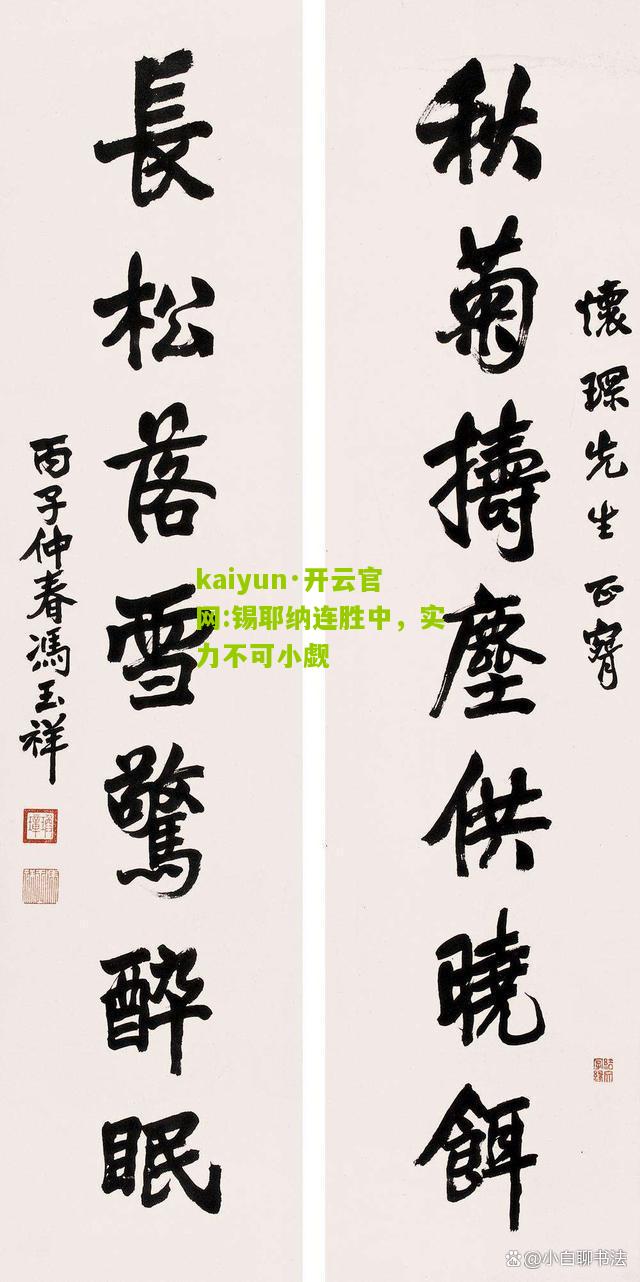 懷琛先生正
秋菊擣塵供曉餌
長松落雪驚醉眠
丙子仲春馮玉祥
kaiyun·开云官
网:锡耶纳连胜中，实
力不可小觑
@小白聊书法